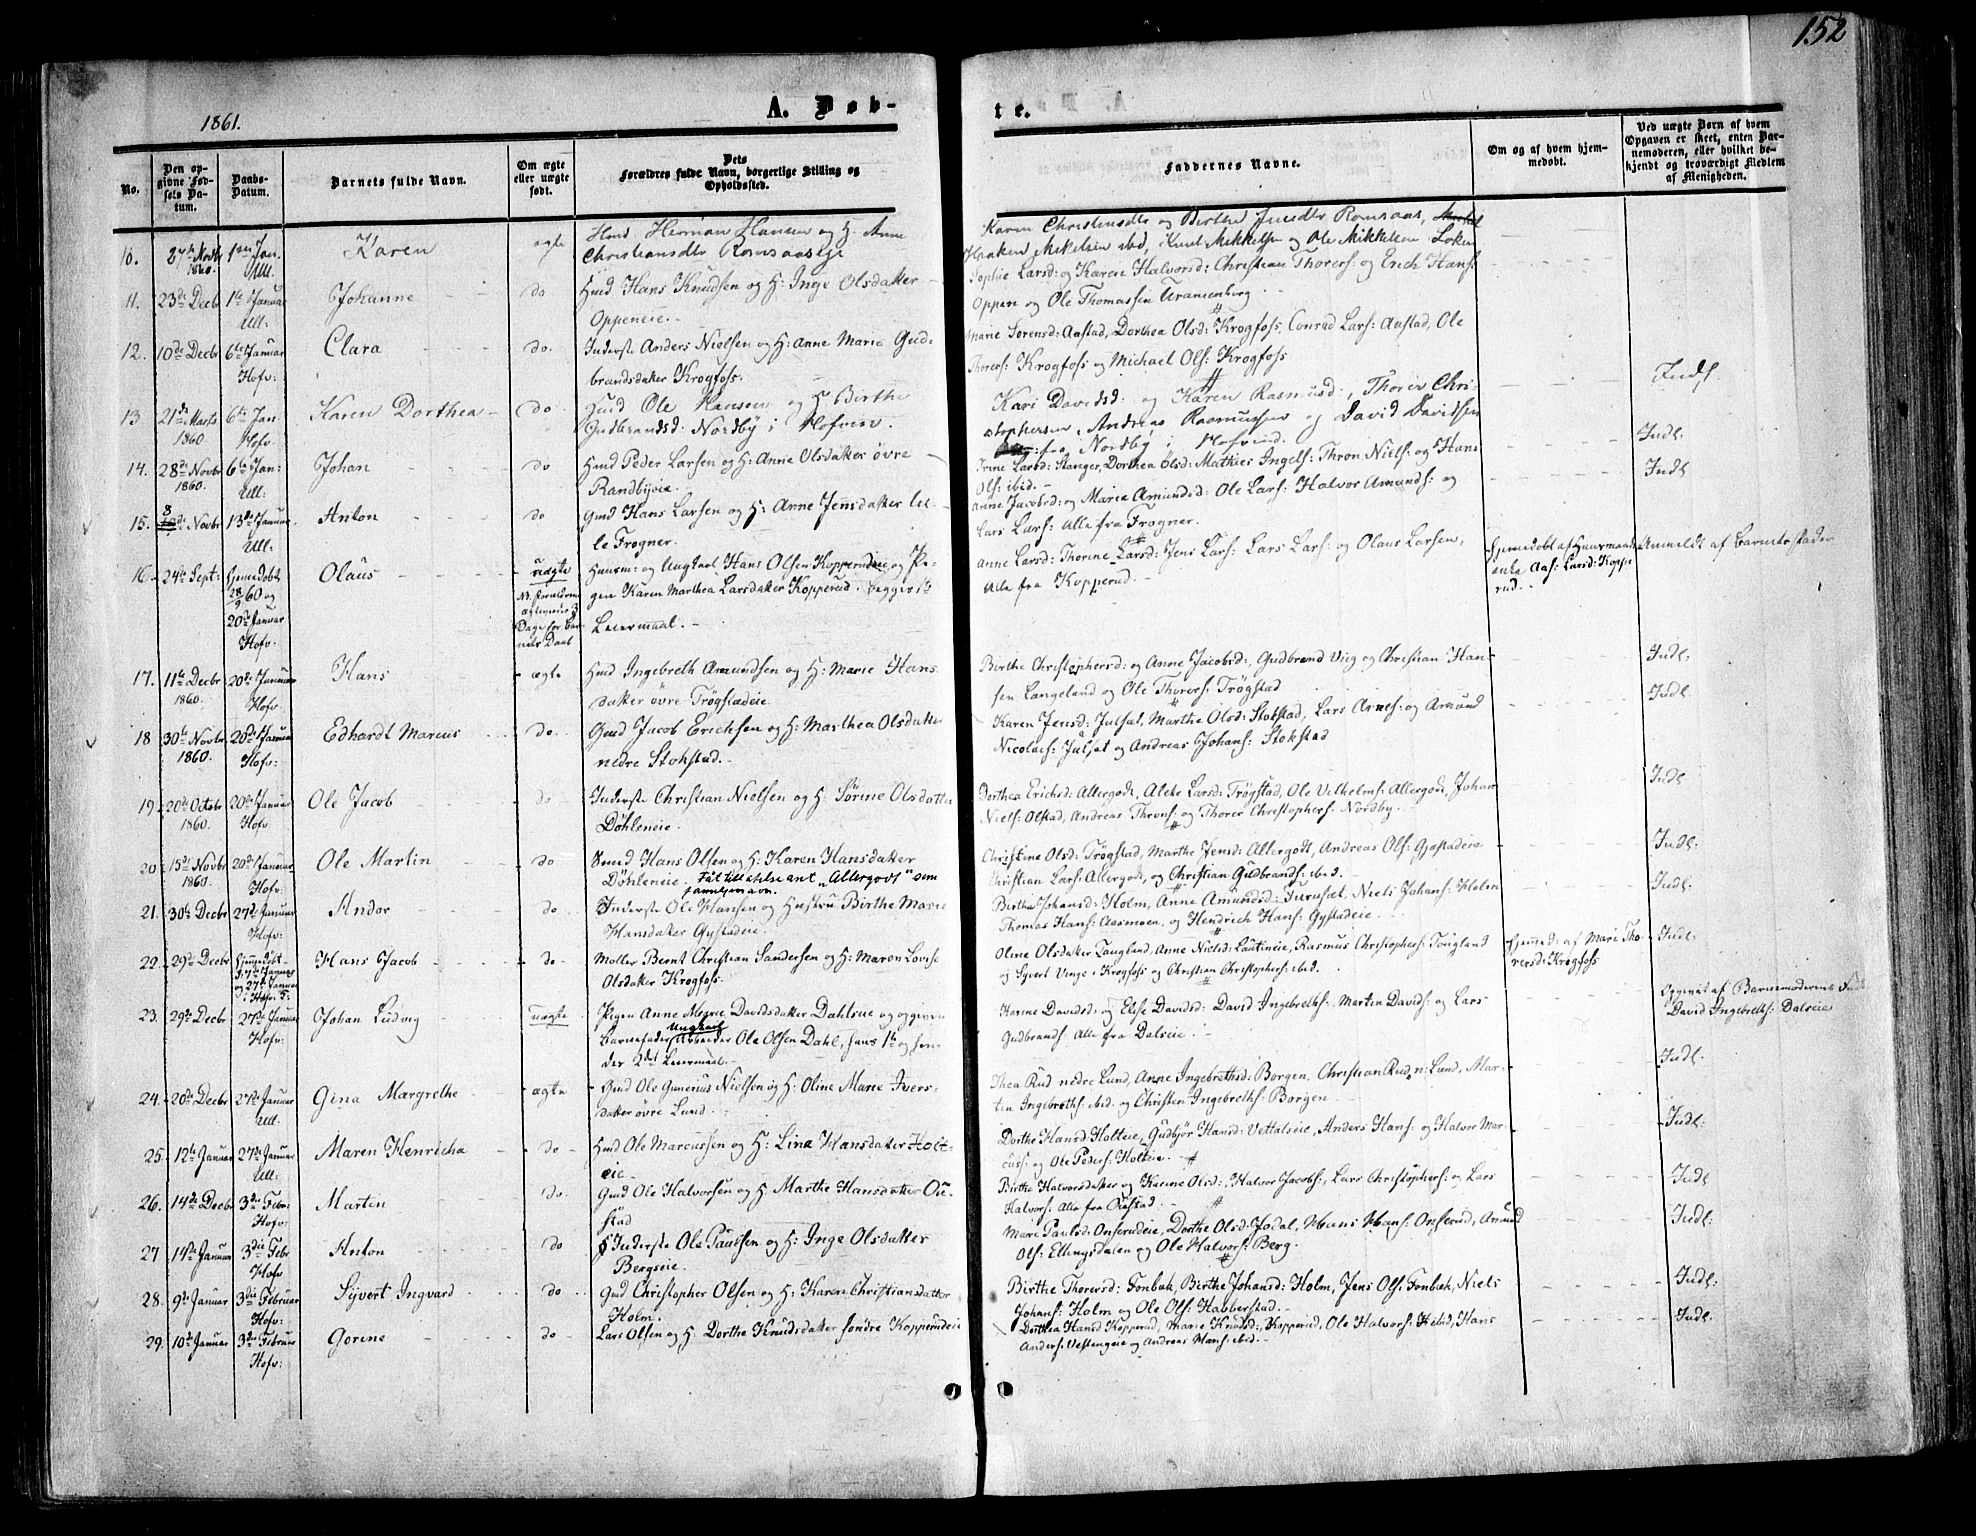 152
1861.
A. Døb-
te.
No.
Den op-
givne Fød-
sels Da-
tum.
Daabs-
Datum.
Barnets fulde Navn.
Om ægte
eller uægte
født.
Dets
Forældres fulde Navn, borgerlige Stilling og
Opholdssted.
Faddernes Navne.
Om og af hvem hjem-
medøbt.
Ved uægte Børn af hvem
Opgaven er skeet, enten Bar-
nemoderen, eller hvilket be-
kjendt og troværdigt Medlem
af Menigheden.
10. 27de Novbr 1860. 1ste Jan. Ull. Karen ægte
Hmd Herman Hansen og H. Anne
Christiansdtr Romsaaseje
Karen Christensdtr og Birthe Jensdtr Romsaas,
Haaken Mikelsen ibd, Knut Mikkelsen og Ole Mikkelsen Løken
11. 23de Decbr 1ste Januar Ull: Johanne do
Hmd Hans Knudsen og H: Inge Olsdatter
Oppeneie.
Sophie Larsd: og Karen Halvorsd: Christian Thorers: og Erich Hans:
Oppen og Ole Thomassen Tranenborg
12. 10de Decbr 6te Januar Hofv: Clara do.
Inderste Anders Nielsen og H: Anne Marie Gud-
brandsdatter Krogfoss.
Marie Sørensd: Aastad, Dorthea Olsd: Krogfoss, Conrad Lars: Aastad, Ole
Thorers: Krogfoss og Michael Ols: Krogfoss
Indl
13 21de Marts 1860 6te Jan Hofv. Karen Dorthea do
Hmd Ole Hansen og H Birthe
Gudbrandsd: Nordby i Hofvin.
Kari Davidsd: og Karen Rasmusd:, Thorer Chri-
stophersen, Andreas Rasmussen og David Davidsen
fra Nordby i Hofvind.
Indl:
14. 28de Novbr 1860. 6te Jan: Ull: Johan do
Hmd Peder Larsen og H: Anne Olsdatter øvre
Randbyeie.
Trine Larsd: Slanger, Dorthea Olsd: Mathies Ingels: Thron Niels: og Hans
Ols: ibid.
Indl
15. 8 Novbr 13de Januar Ull: Anton do
Gmd Hans Larsen og H: Anne Jensdatter lil-
le Frogner.
Anne Jacobsd: og Maria Amundsd: Ole Lars: Halvor Amunds: og
Lars Lars: Alle fra Frogner.
16 24de Sept: Hjemedøbt 28/9 60 og 20de Januar Hofv. Olaus uægte
Nb. Forældrene
ægteviede 3
Dage før Bar-
nets Daab
Huusm: og Ungkarl Hans Olsen Kopperudeie og Pi-
gen Karen Marthea Larsdatter Kopperud. begges 1ste
Leiermaal.
Anne Larsd: Thorine Larsd: Jens Lars: Lars Lars: og Olaus Larsen,
Alle fra Kopperud.
Hjemedøbt af Huusmands
enke Aas: Larsd: Koppe
rud.
Anmeldt af Barnets fader
17. 11te Decbr 1860. 20de Januar Hofv. Hans ægte
Hmd Ingebreth Amundsen og H: Marie Hans
datter øvre Trøgstadeie.
Birthe Christophersd: og Anne Jacobsd:, Gudbrand Viig og Christian Han-
sen Langeland og Ole Thorers: Trøgstad
Indl:
18 30te Novbr 1860. 20de Januar Hofv: Edhardt Marius do.
Gmd Jacob Erichsen og H: Marthea Olsdatter
nedre Stokstad.
Karen Jensd: Julsæt, Marthe Olsd: Stokstad, Lars Arnes: og Amund
Nicolais: Julsæt og Andreas Johans: Stokstad
Indl:
19 20de Octobr 1860. 20de Januar Hofv: Ole Jacob do
Inderste Christian Nielsen og H: Sørine Olsdatter
Døhleneie.
Dorthea Ericksd: Allergodt, Aleke Larsd: Trøgstad, Ole Vilhelms: Allergodt, Johan
Niels: Olstad, Andreas Throns: og Thorer Christophers: Nordby.
Indl
20 15de Novbr 1860. 20de Januar Hofv: Ole Martin do
Smd Hans Olsen og H: Karen Hansdatter
Døhleneie. Fåt tilladelse ant „Allergodt“ som
familjenavn.
Christine Olsd: Trøgstad, Marthe Jensd: Allergodt, Andreas Ols: Gjæstadeie
Christian Lars: Allergodt, og Christian Gudbrands: ibid.
Indl:
21. 30te Decbr 27de Januar Hofv: Andor do
Inderste Ole Hansen og Hustru Birthe Marie
Hansdatter Gystadeie.
Birthe Johansd: Holm, Anne Amundsd: Furusæt, Niels Johans: Holm
Thomas Hans: Aasmoen og Hendrich Hans: Gystadeie
Indl:
22. 29de Decbr Hjemmedøbt og 27de Januar Hans Jacob do
Møller Bernt Christian Sandersen og H: Maren Lovise
Olsdatter Krogfoss.
Oline Olsdatter Taugland, Anne Nielsd: Lautineie, Rasmus Christophers: Tougland
og Syvert Vinge i Krogfoss og Christian Christophers: ibid.
Hjemmed: af Mari Tho-
rersd: Krogfoss
Indl:
23. 29de Decbr 27de Januar Hofv: Johan Ludvig uægte
Pigen Anne Megrie Davidsdatter Dahlseie og opgiven
Barnefader Ungkarl Arbeider Ole Olsen Dahl, hans 1ste og hen-
des 2det Leiermaal.
Karine Davidsd: og Elise Davidsd: David Ingebreths: Martin Davids: og Lars
Gudbrands: Alle fra Dalseie.
Opgivet af Barnemoderens Fad
David Ingebreths: Dalseie
24. 20de Decbr 27de Januar Ull: Gina Margrethe ægte
Gmd Ole Gunerius Nielsen og H: Oline Marie Ivers-
datter øvre Lund.
Thea Rud nedre Lund, Anne Ingebrethsd: Borgen, Christian Rud n: Lund, Mar-
ten Ingebreths: ibid. og Christen Ingebreths: Borgen.
Indl:
25. 12te Januar 27de Januar Ull: Maren Henricha do
Hmd Ole Marcussen og H: Lina Hansdatter Holt-
eie.
Dorthe Hansd: Holteie, Gudbjør Hansd: Vettalseie, Anders Hans: og Halvor Mar-
cuss: og Ole Peders: Holteie.
Indl:
26. 14de Decbr 3die Febr: Hofv: Martin do
Gmd Ole Halvorsen og H: Marthe Hansdatter Ou-
stad
Birthe Halvorsdatter og Karine Olsd:, Halvor Jacobs:, Lars Christophers: og Lars
Halvors: Alle fra Oustad.
Indl
27 14de Januar 3die Febr Hofv Anton do
Inderste Ole Paulsen og H: Inge Olsdatter
Bergseie.
Mari Paulsd: Onserudeie, Dorthe Olsd: Jødal, Hans Hans: Onserud, Amund
Ols: Ellingsdalen og Ole Halvors: Berg.
Indl:
28. 9de Januar 3die Februar Hofv: Syvert Ingvard do
Gmd Christopher Olsen og H: Karen Christiansdatter
Holm.
Birthe Thorersd: Fonbæk, Birthe Johansd: Holm, Jens Ols: Fonbæk, Niels
Johans: Holm og Ole Ols: Habberstad.
Indl:
29. 10de Januar 3die Februar Hofv: Gorine do
Lars Olsen og H Dorthe Knudsdatter søndre Kopperudeie
Dorthea Hansd Kopperud, Marie Knudsd: Kopperud, Ole Halvors: Kilud, Hans
Anders: Vestengeie og Andreas Hans: ibid.
Indl: